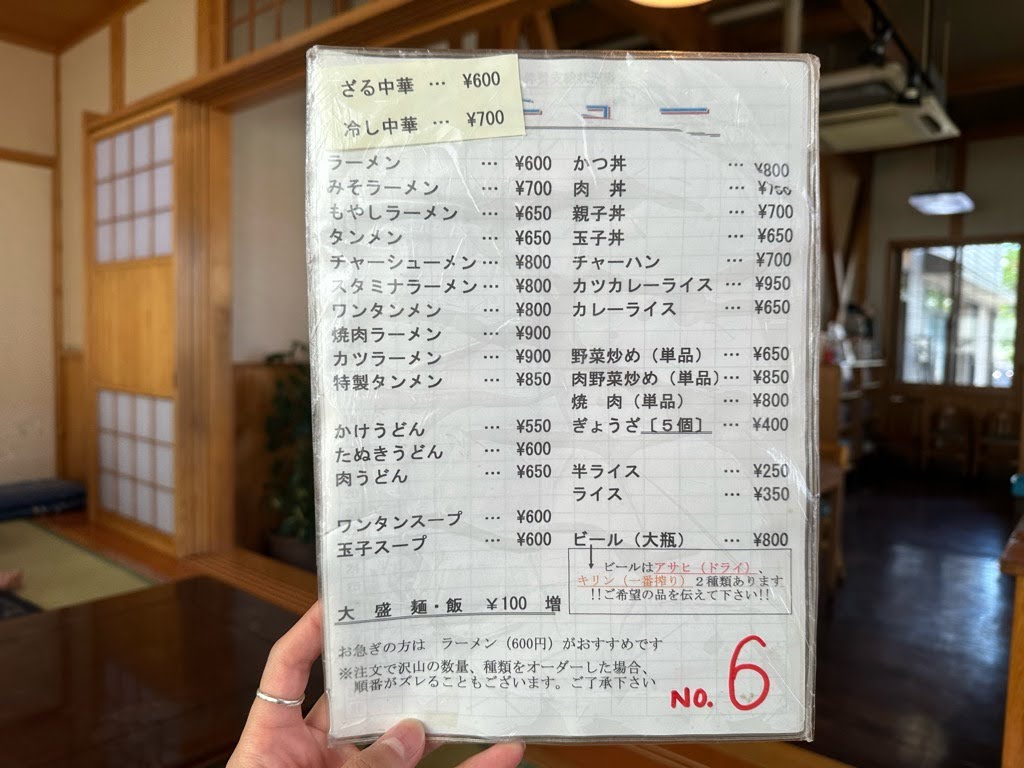 ざる中華 … ¥600
冷し中華 … ¥700
ニュー
ラーメン … ¥600
みそラーメン … ¥700
もやしラーメン … ¥650
タンメン … ¥650
チャーシューメン … ¥800
スタミナラーメン … ¥800
ワンタンメン … ¥800
焼肉ラーメン … ¥900
カツラーメン … ¥900
特製タンメン … ¥850
かけうどん … ¥550
たぬきうどん … ¥600
肉うどん … ¥650
ワンタンスープ … ¥600
玉子スープ … ¥600
大 盛 麺・飯 ¥100 増
かつ丼 … ¥800
肉 丼 …
親子丼 … ¥700
玉子丼 … ¥650
チャーハン … ¥700
カツカレーライス … ¥950
カレーライス … ¥650
野菜炒め（単品） … ¥650
肉野菜炒め（単品）… ¥850
焼 肉（単品） … ¥800
ぎょうざ［５個］ … ¥400
半ライス … ¥250
ライス … ¥350
ビール（大瓶） … ¥800
ビールはアサヒ（ドライ）、
キリン（一番搾り）２種類あります
!!ご希望の品を伝えて下さい!!
お急ぎの方は ラーメン（600円）がおすすめです
※注文で沢山の数量、種類をオーダーした場合、
順番がズレることもございます。ご了承下さい
NO. 6